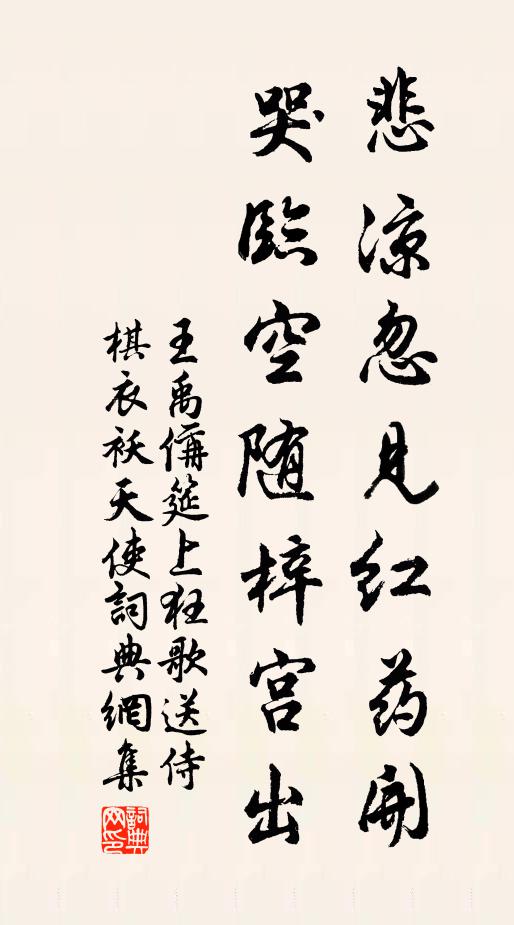 悲凉忽见红药开
哭臨空随梓宫出
王禹偁筵上狂歌送侍
棋衣袄天使詞典網集
詞典
网印